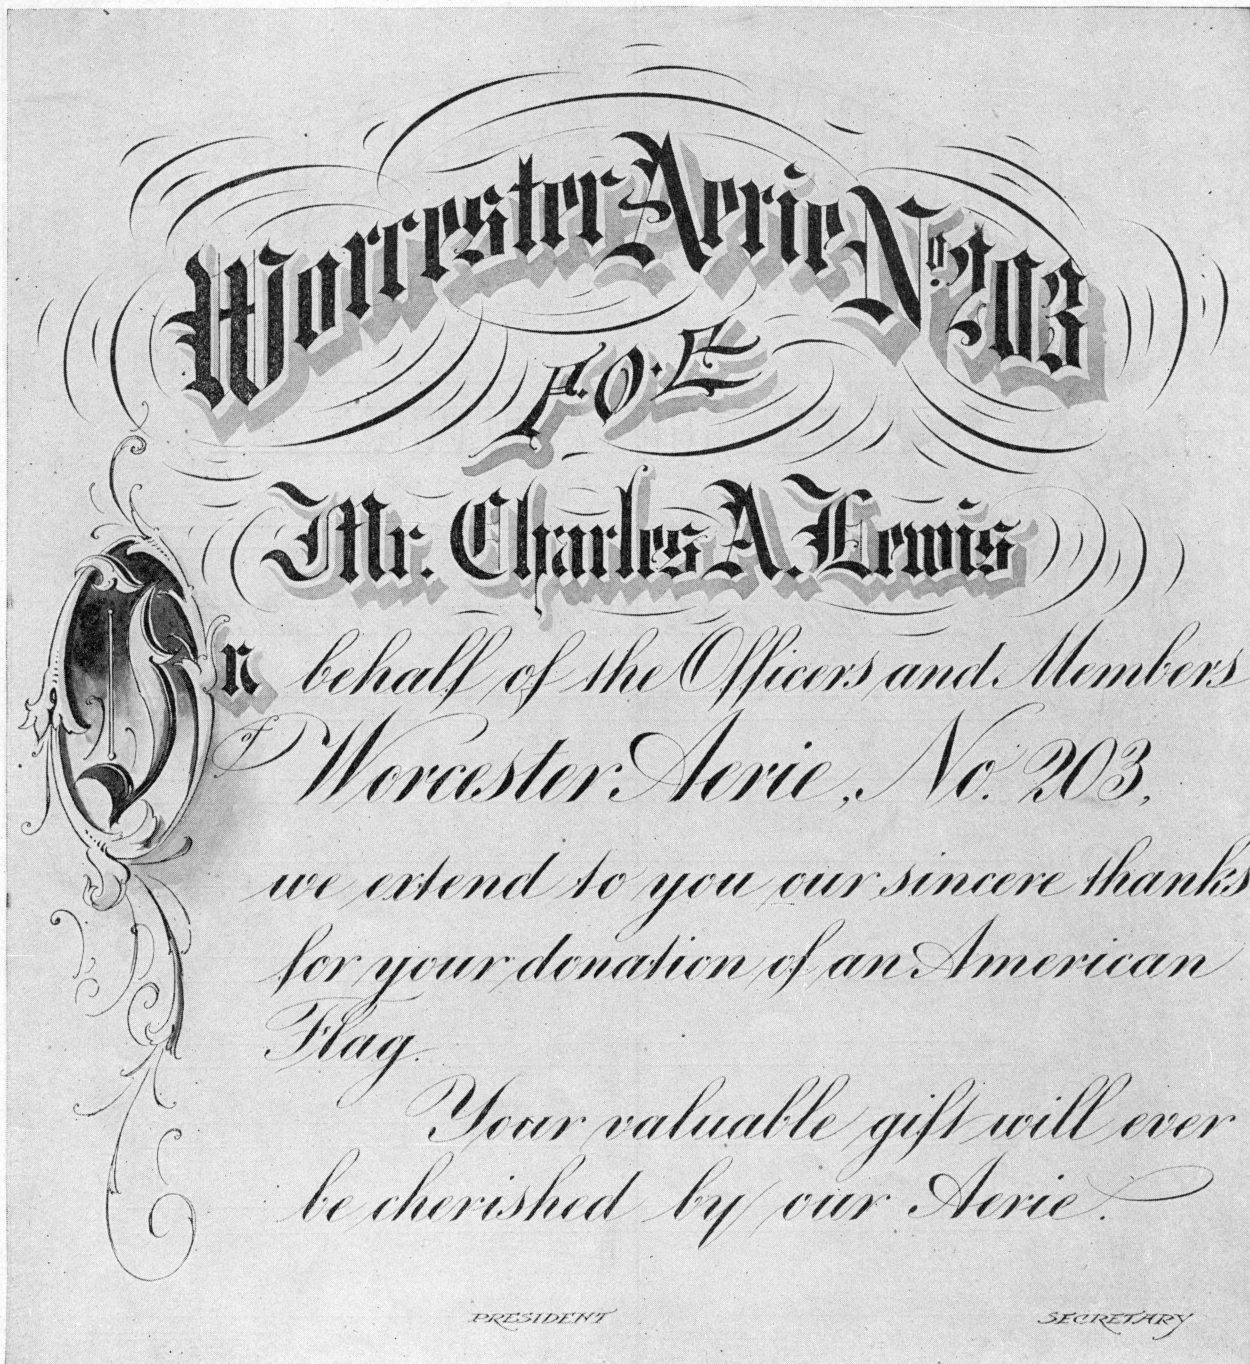 Worcester Aerie No. 203
F.O.E
Mr. Charles A. Lewis
In behalf of the Officers and Members
of Worcester Aerie, No. 203,
we extend to you our sincere thanks
for your donation of an American
Flag.
Your valuable gift will ever
be cherished by our Aerie.
PRESIDENT SECRETARY